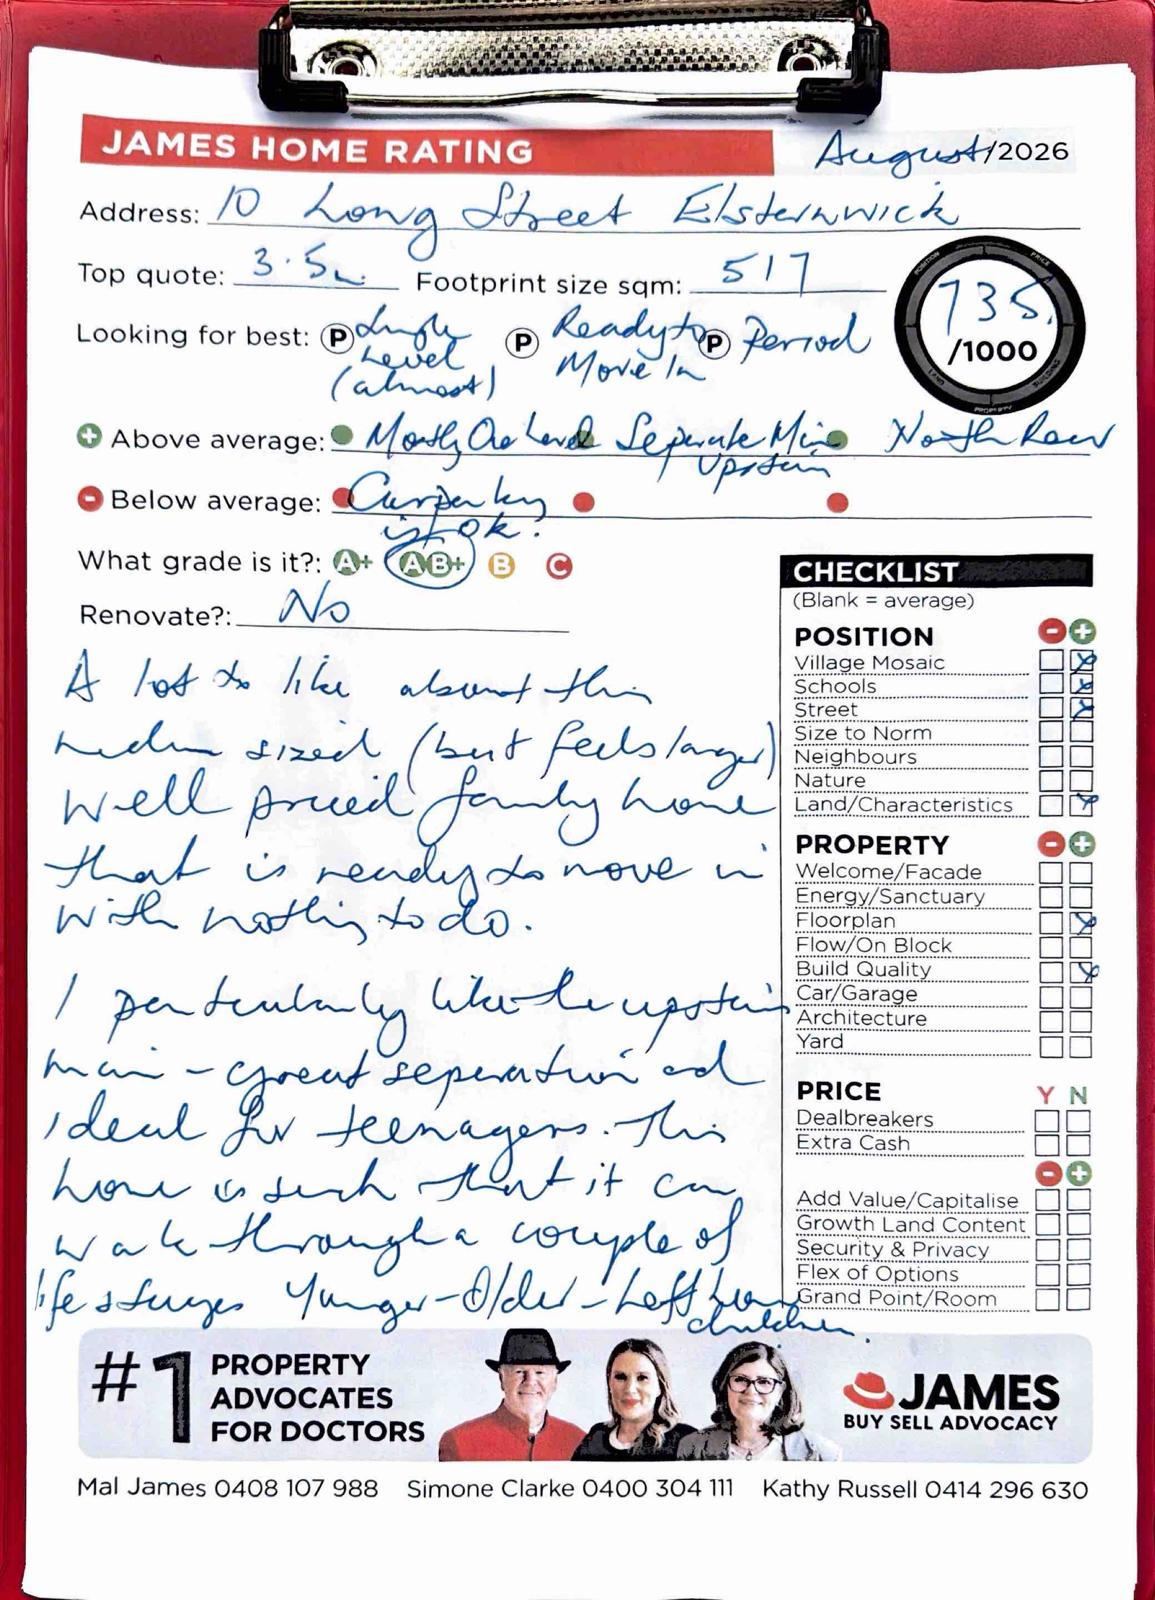 JAMES HOME RATING August/2026
Address: 10 Long Street Elsternwick
Top quote: 3.5m Footprint size sqm: 517
735
/1000
POSITION PRICE LAND PROPERTY
Looking for best: P Single Level (almost) P Ready to Move In P Period
+ Above average: Mostly One Level Separate Main Upstairs North Rear
- Below average: Carparking is ok?
What grade is it?: A+ AB+ B C
Renovate?: No
A lot to like about this
medium sized (but feels larger)
well priced family home
that is ready to move in
with nothing to do.
I particularly like the upstairs
main - great separation and
ideal for teenagers. This
home is such that it can
walk through a couple of
life stages Younger - Older - Left home
children.
CHECKLIST
(Blank = average)
POSITION - +
Village Mosaic
Schools
Street
Size to Norm
Neighbours
Nature
Land/Characteristics
PROPERTY - +
Welcome/Facade
Energy/Sanctuary
Floorplan
Flow/On Block
Build Quality
Car/Garage
Architecture
Yard
PRICE Y N
Dealbreakers
Extra Cash
- +
Add Value/Capitalise
Growth Land Content
Security & Privacy
Flex of Options
Grand Point/Room
#1 PROPERTY
ADVOCATES
FOR DOCTORS
JAMES
BUY SELL ADVOCACY
Mal James 0408 107 988 Simone Clarke 0400 304 111 Kathy Russell 0414 296 630